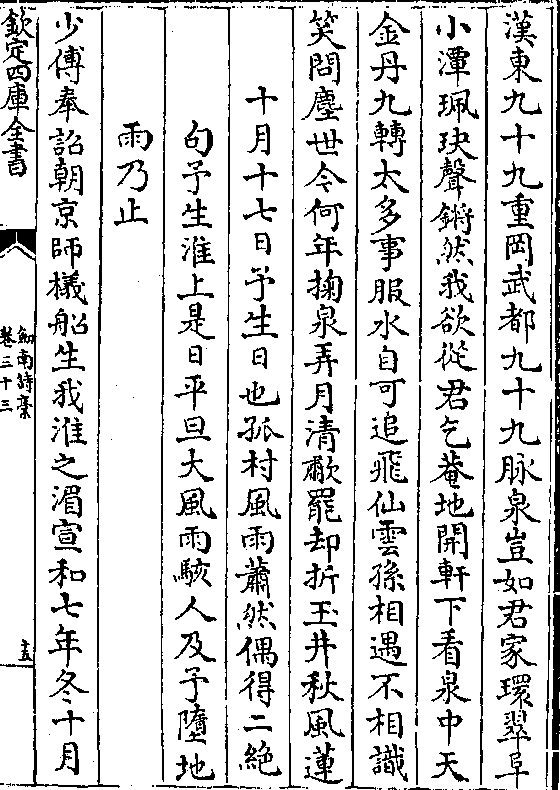 漢東九十九重岡武都九十九脉泉豈如君家環翠阜
小潭珮玦聲鏘然我欲從君乞菴地開軒下看泉中天
金丹九轉太多事服水自可追飛仙雲孫相遇不相識
笑問塵世今何年掬泉弄月清歡罷却折玉井秋風蓮
十月十七日予生日也孤村風雨蕭然偶得二絶
句予生淮上是日平旦大風雨駭人及予墮地
雨乃止
少傅奉詔朝京師檥船生我淮之湄宣和七年冬十月
欽定四庫全書
劍南詩稾
卷三十三